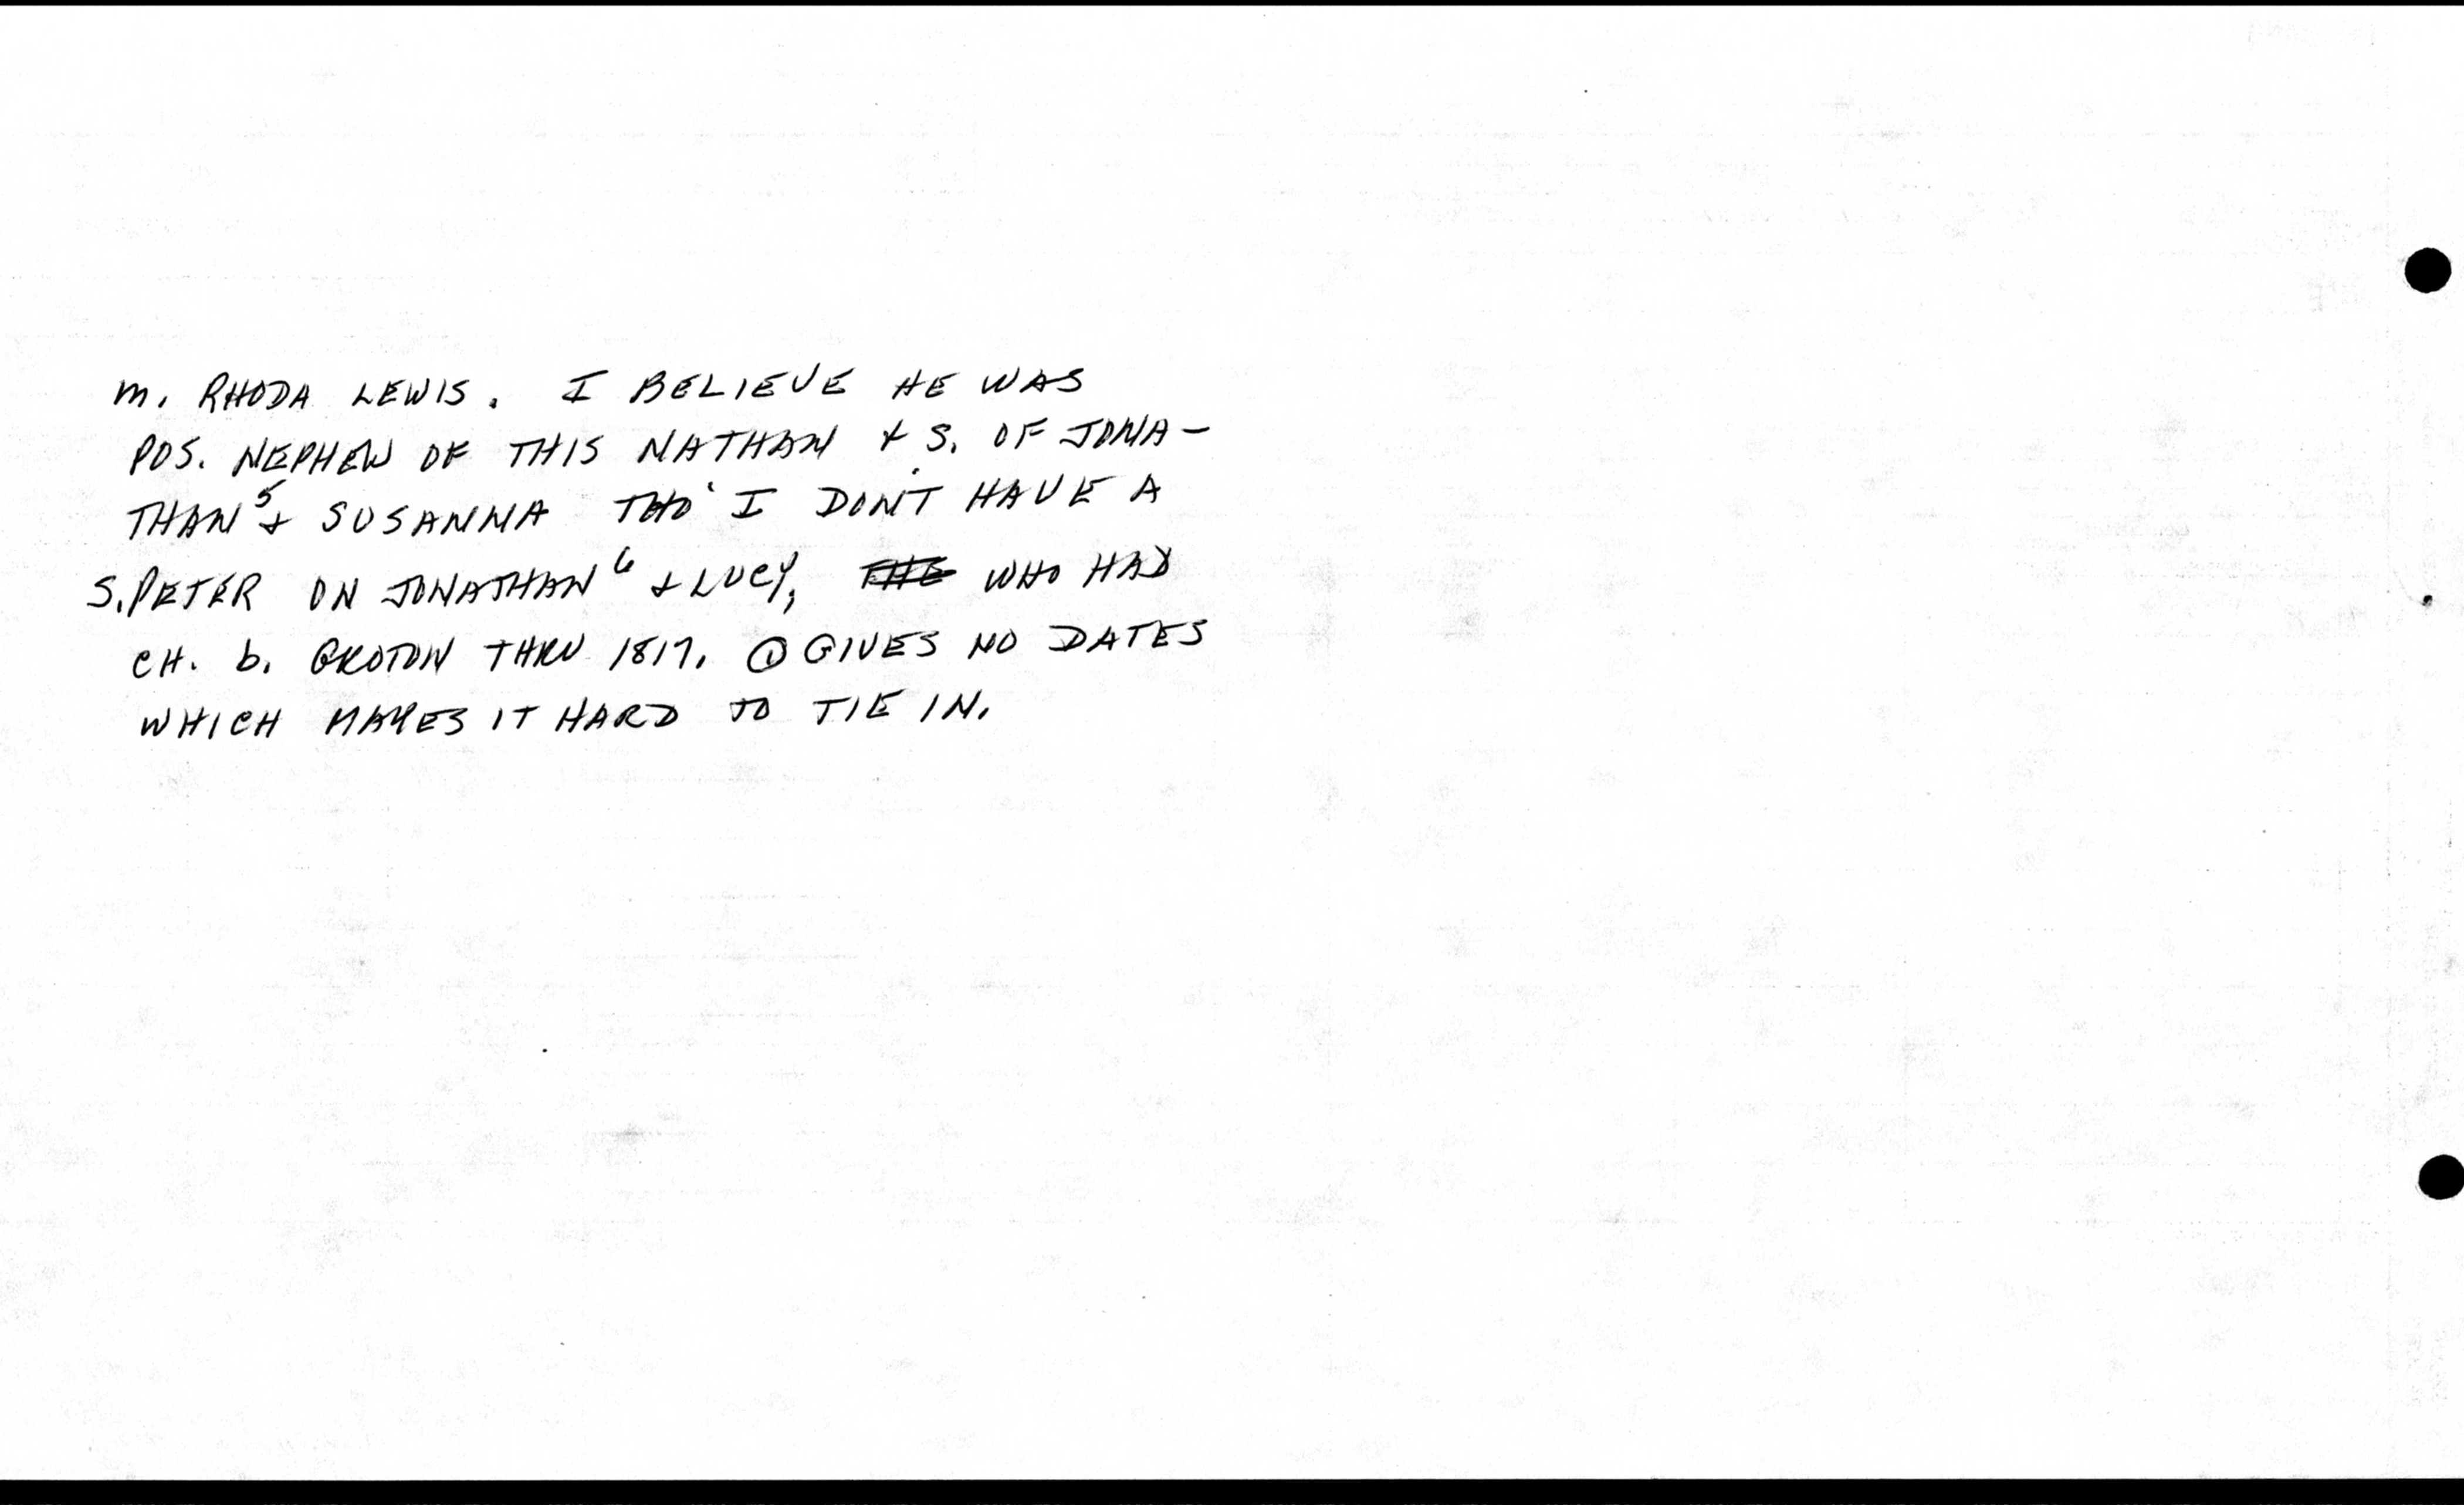 m. RHODA LEWIS. I BELIEVE HE WAS
POS. NEPHEW OF THIS NATHAN & S. OF JONA-
THAN⁵ & SUSANNA THO' I DON'T HAVE A
S. PETER ON JONATHAN⁶ & LUCY, THE WHO HAD
CH. b. GROTON THRU 1817. ① GIVES NO DATES
WHICH MAKES IT HARD TO TIE IN.